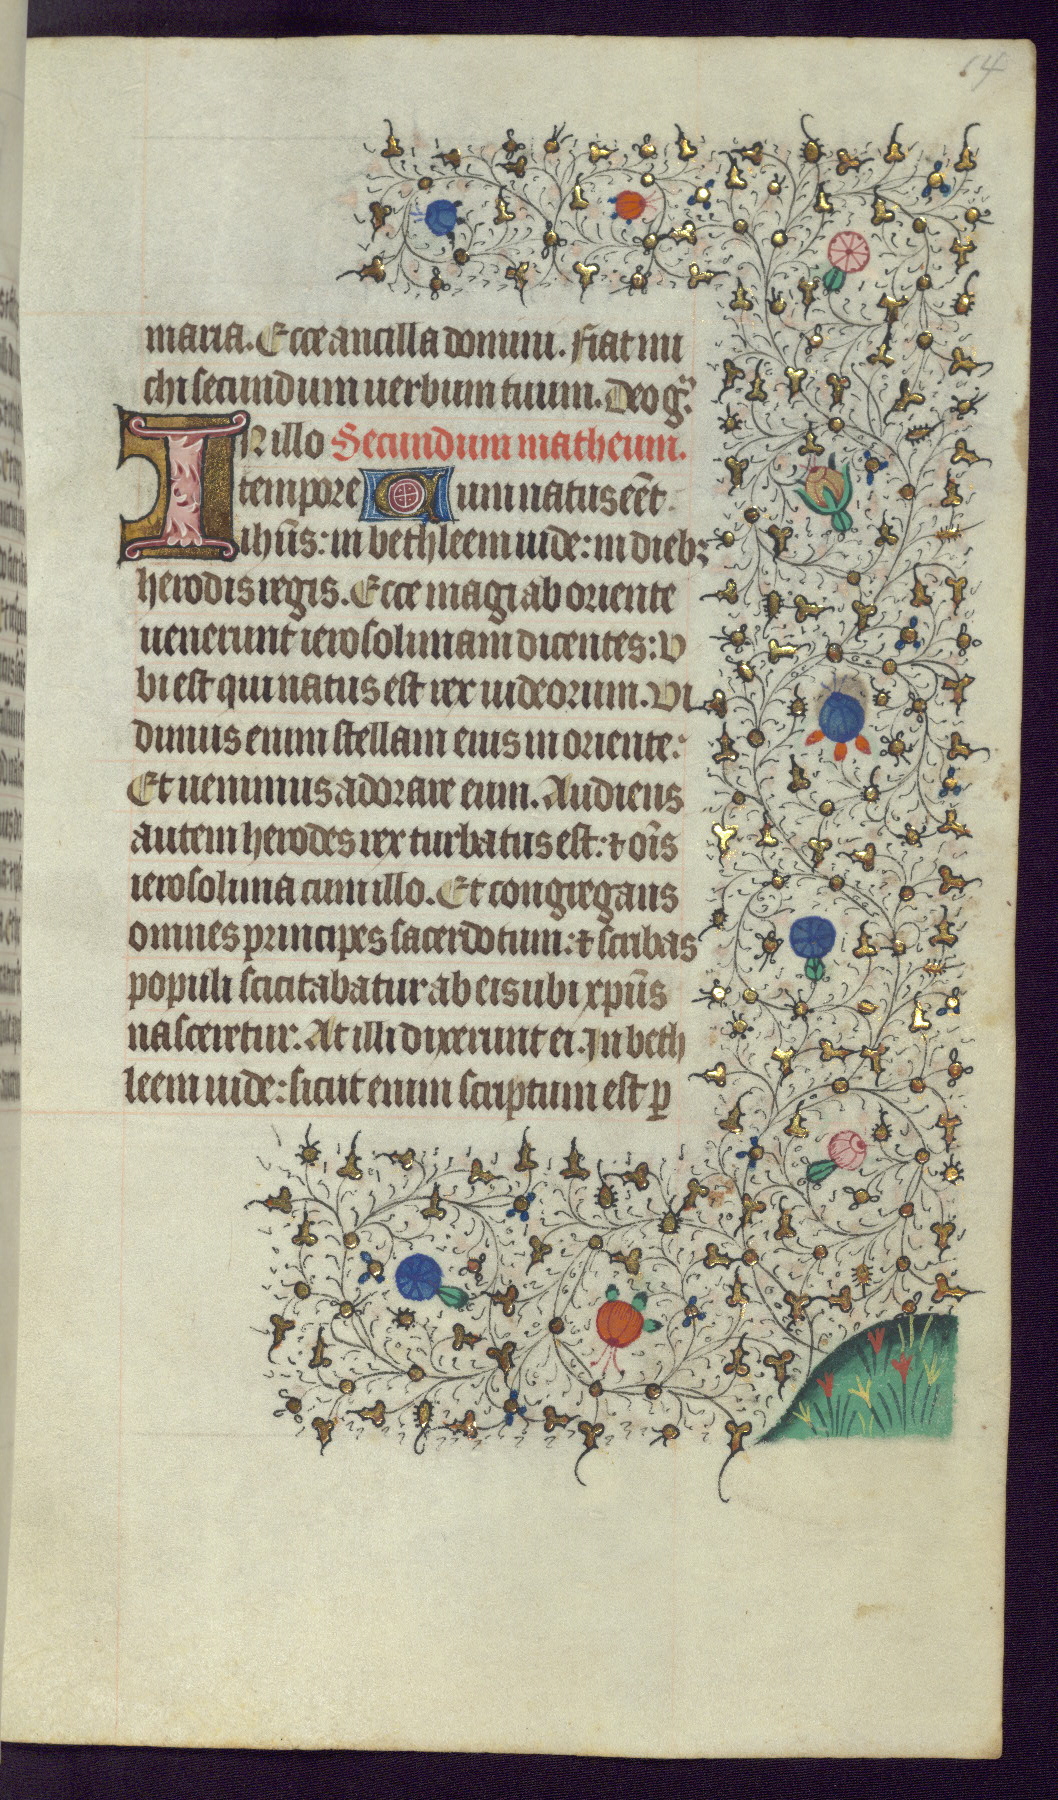 14
maria. Ecce ancilla domini. Fiat mi
chi secundum uerbum tuum. Deo gr̄.
In illo Secundum matheum.
tempore Cum natus eēt
ihūs: in bethleem iude: in dieb;
herodis regis. Ecce magi ab oriente
uenerunt ierosolimam dicentes: V
bi est qui natus est rex iudeorum. Vi
dimus enim stellam eius in oriente:
Et uenimus adorare eum. Audiens
autem herodes rex turbatus est: ⁊ oīs
ierosolima cum illo. Et congregans
omnes principes sacerdotum: ⁊ scribas
populi scicitabatur ab eis ubi xpūs
nasceretur. At illi dixerunt ei. In beth
leem iude: sicut enim scriptum est ꝑ